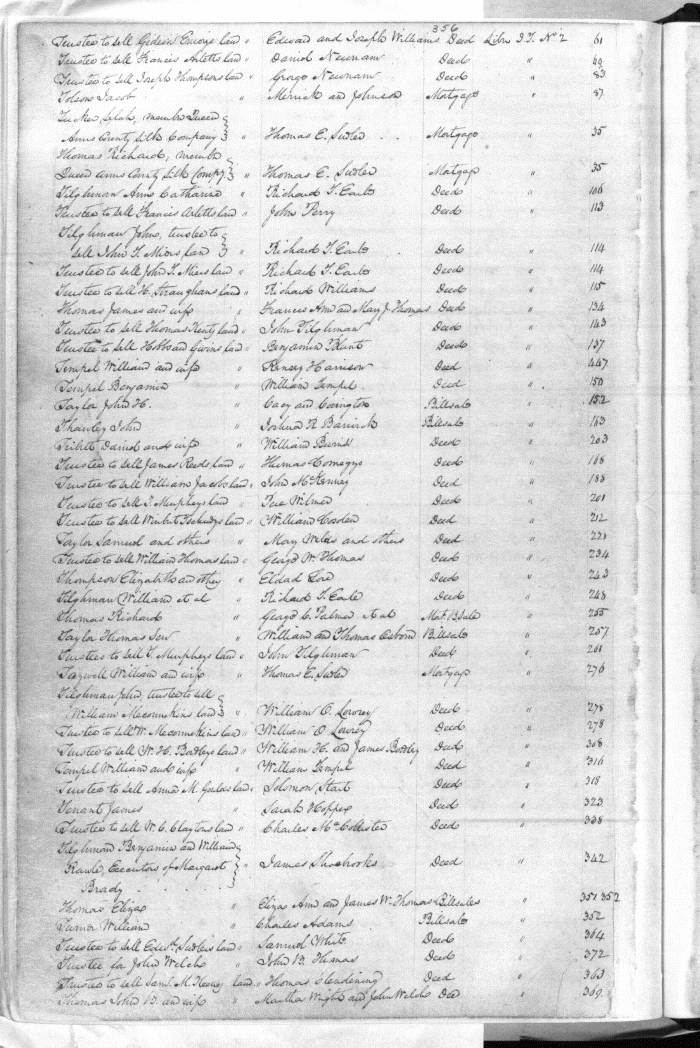 356
Trustee to sell Gideon land " Edward and Joseph Williams Deed Libr I.T. No 2 61
Trustee to sell Francis Arletts land " Daniel Newnam Deed "
Trustee to sell Joseph Thompsons land " George Newnam Deed " 83
Tolson Jacob " Merrick and Johnson Mortgage " 87
Tucker, Selah, membr Queen
Anns County Silk Company " Thomas E. Sudler Mortgage " 35
Thomas Richard, membr
Queen Anns County Silk Compy " Thomas E. Sudler Mortgage " 35
Tilghman Ann Catharine " Richard T. Earle Deed " 106
Trustee to sell Francis Arletts land " John Perry Deed " 113
Tilghman John, trustee to
sell John T. Miers land " Richard T. Earle Deed " 114
Trustee to sell John T. Miers land " Richard T. Earle Deed " 114
Trustee to sell H. Straughans land " Richard Williams Deed " 115
Thomas James and wife " Frances Ann and Mary J. Thomas Deed " 134
Trustee to sell Thomas land " John Tilghman Deed " 143
Trustee to sell Hobbs and Gwins land " Benjamin Blunt Deed " 137
Tempel William and wife " Harrison Deed " 447
Tempel Benjamin " William Tempel Deed " 150
Taylor John H. " Cacy and Covington Billsale " 152
Thawley John " Joshua R. Barwick Billsale " 163
Tribett Daniel and wife " William Deed " 203
Trustee to sell James Reeds land " Thomas Comegys Deed " 168
Trustee to sell William Jacobs land " John McKenney Deed " 188
Trustee to sell T. Murpheys land " Wilmer Deed " 201
Trustee to sell land " William Cosden Deed " 212
Taylor Samuel and others " Mary and others Deed " 221
Trustee to sell William Thomas land " George W. Thomas Deed " 234
Thompson Elizabeth and othy " Eldad Deed " 243
Tilghman William et al " Richard T. Earle Deed " 248
Thomas Richard " George C. Palmer et al Mot. B Sale " 255
Taylor Thomas Senr " William and Thomas Osborn Billsale " 257
Trustee to sell T. Murpheys land " John Tilghman Deed " 261
Tazwell William and wife " Thomas E. Sudler Mortgage " 276
Tilghman John, trustee to sell
William Meconnekins land " William O. Lowrey Deed " 278
Trustee to sell W. Meconnekins land " William O Lowrey Deed " 278
Trustee to sell W. H. Bottleys land " William H. and James Bottley Deed " 308
Tempel William and wife " William Tempel Deed " 316
Trustee to sell Anna M. land " Solomon Start Deed " 318
Tenant James " Sarah Hopper Deed " 323
Trustee to sell W. C. Claytons land " Charles McCollister Deed " 338
Tilghman Benjamin and William
Rawle, Executors of Margaret
Brady " James Shocbrooks Deed " 342
Thomas Eliza " Eliza Ann and James W. Thomas Billsales " 351 352
Turner William " Charles Adams Billsale " 352
Trustee to sell Edwd. Sudlers land " Samuel White Deed " 364
Trustee for John Welch " John B. Thomas Deed " 372
Trustee to sell Saml. M. Keeney land " Thomas Clendining Deed " 363
Thomas John B. and wife " Martha Wright and John Welch Deed " 369